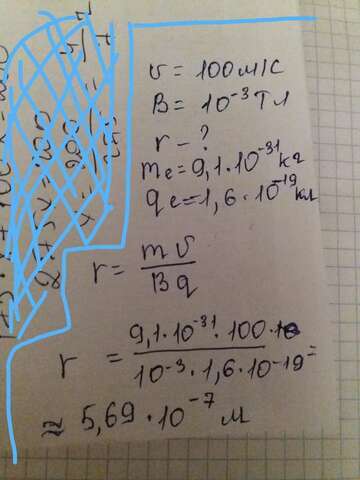 v = 100 м/с
B = 10⁻³ Тл
r - ?
mₑ = 9,1 · 10⁻³¹ кг
qₑ = -1,6 · 10⁻¹⁹ кл
r = mv / Bq
r = 9,1 · 10⁻³¹ · 100 / 10⁻³ · 1,6 · 10⁻¹⁹ =
≈ 5,69 · 10⁻⁷ м